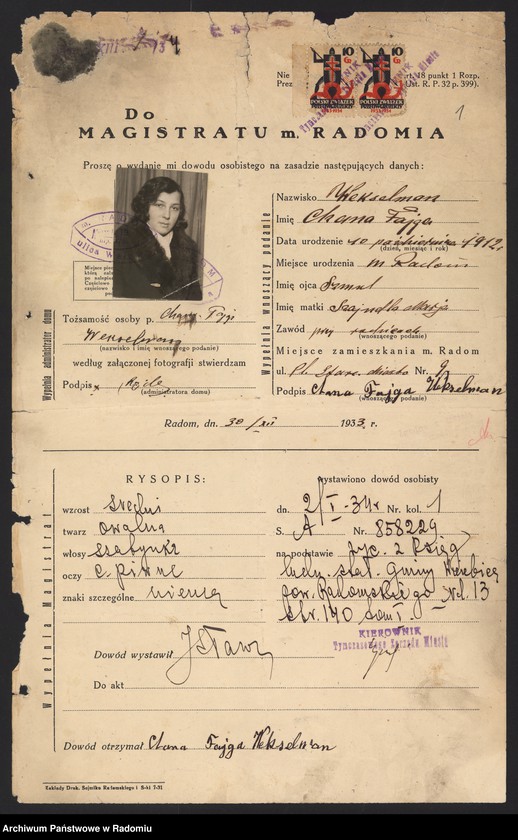 XII 1934
10 Gr 10 Gr
POLSKI ZWIĄZEK POLSKI ZWIĄZEK
Nie
art. 18 punkt 1 Rozp.
Prez
(Ust. R. P. 32 p. 399).
1
Do
MAGISTRATU m. RADOMIA
Proszę o wydanie mi dowodu osobistego na zasadzie następujących danych:
Wypełnia wnoszący podanie
Nazwisko Wekselman
Imię Chana Fajga
Data urodzenia 10 października 1912
(dzień, miesiąc i rok)
Miejsce urodzenia m Radom
Imię ojca Szmul
Imię matki Szajndla
Zawód przy rodzicach
(wnoszącego podanie)
Miejsce zamieszkania m. Radom
ul. Pl. Stare-miasto Nr. 9
Podpis Chana Fajga Wekselman
(wnoszącego podanie)
Wypełnia administrator domu
Tożsamość osoby p. Chany-Fajgi
Wekselman
(nazwisko i imię wnoszącego podanie)
według załączonej fotografji stwierdzam
Podpis
(administratora domu)
Radom, dn. 30/XII 1933 r.
Wypełnia Magistrat
RYSOPIS:
wzrost średni
twarz owalna
włosy szatynka
oczy c. piwne
znaki szczególne niema
Wystawiono dowód osobisty
dn. 2/I-34r Nr. kol. 1
S. A Nr. 858229
na podstawie wyc. z Ksiąg
ludn. stał. Gminy Wierzbica
pow. Radomskiego Nr. 13
str. 140 tom I.
KIEROWNIK
Tymczasowego Zarządu Miasta
Dowód wystawił
Do akt
Dowód otrzymał Chana Fajga Wekselman
Zakłady Druk. Sejmiku Radomskiego i S-ki 7-31
Archiwum Państwowe w Radomiu